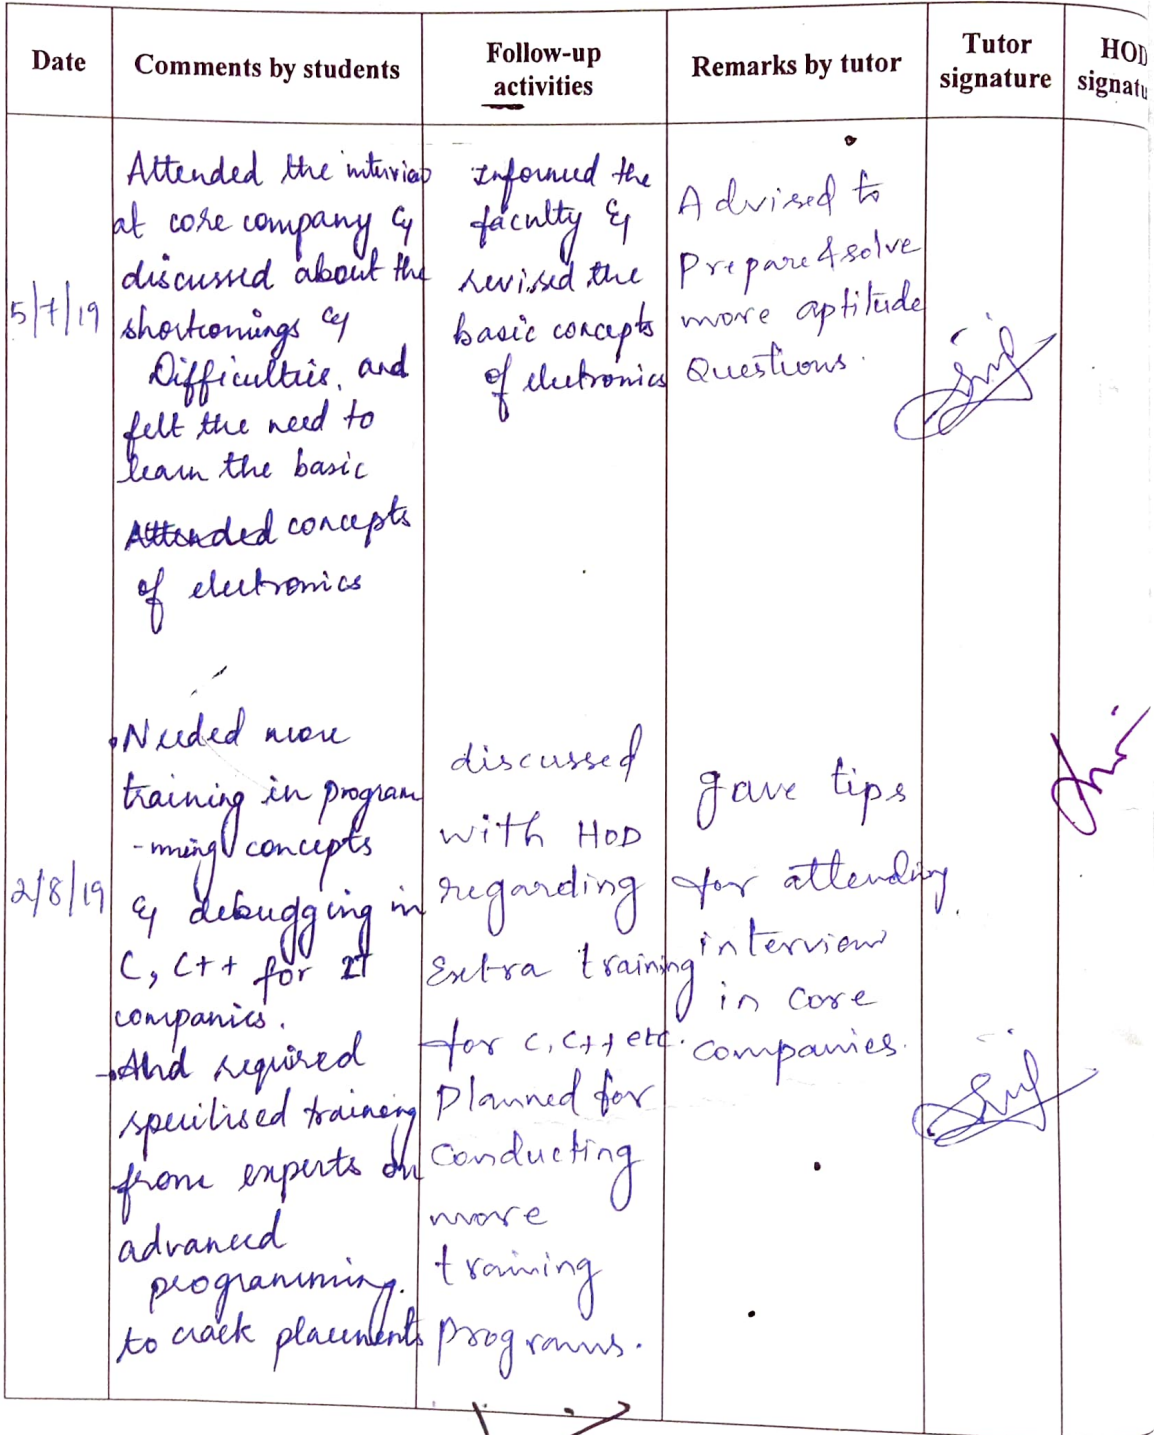 Date
Comments by students
Follow-up
activities
Remarks by tutor
Tutor
signature
HOD
signatu
5/7/19
Attended the interview
at core company &
discussed about the
shortcomings &
Difficulties, and
felt the need to
learn the basic
Attended concepts
of electronics
Informed the
faculty &
revised the
basic concepts
of electronics
Advised to
Prepare & solve
more aptitude
Questions.
2/8/19
Needed more
training in program
-ming concepts
& debugging in
C, C++ for IT
companies.
And required
specilised training
from experts on
advanced
programming.
to crack placements
discussed
with HOD
regarding
Extra training
for C, C++ etc.
Planned for
Conducting
more
training
Programs.
gave tips
for attending
interview
in core
companies.